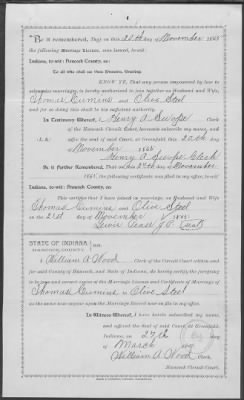 Be it remembered, That on 20th day November 1865
the following Marriage License was issued, to-wit:
Indiana, to-wit: Hancock County, ss:
To all who shall see these Presents, Greeting:
KNOW YE, That any person empowered by law to
solemnize marriage, is hereby authorized to join together as Husband and Wife
Thomas Cumins and Olive Steel
and for so doing this shall be his sufficient authority.
In Testimony Whereof, I Henry A Swope Clerk
of the Hancock Circuit Court, hereunto subscribe my name, and
(L.S.) affix the seal of said Court, at Greenfield, this 20th
November 1865
Henry A Swope Clerk
Be it Further Remembered, That on this
November
1865, the following certificate was filed in my office, to-wit:
Indiana, to-wit: Hancock County, ss:
This certifies that I have joined in marriage, as Husband and Wife
Thomas Cumins and Olive Steel
on the 21st day of November 1865
J.P. (Seal)
STATE OF INDIANA
HANCOCK COUNTY, ss:
I, William A Wood Clerk of the Circuit Court within and
for said County of Hancock, and State of Indiana, do hereby certify the foregoing
to be true and correct copies of the Marriage License and Certificate of Marriage of
Thomas Cumins to Olive Steel
as the same now appear upon the Marriage Record now on file in my office.
In Witness Whereof, I have hereto subscribed my name,
and affixed the seal of said Court at Greenfield,
Indiana, on 27th day
of March
William A Wood Clerk
Hancock Circuit Court.